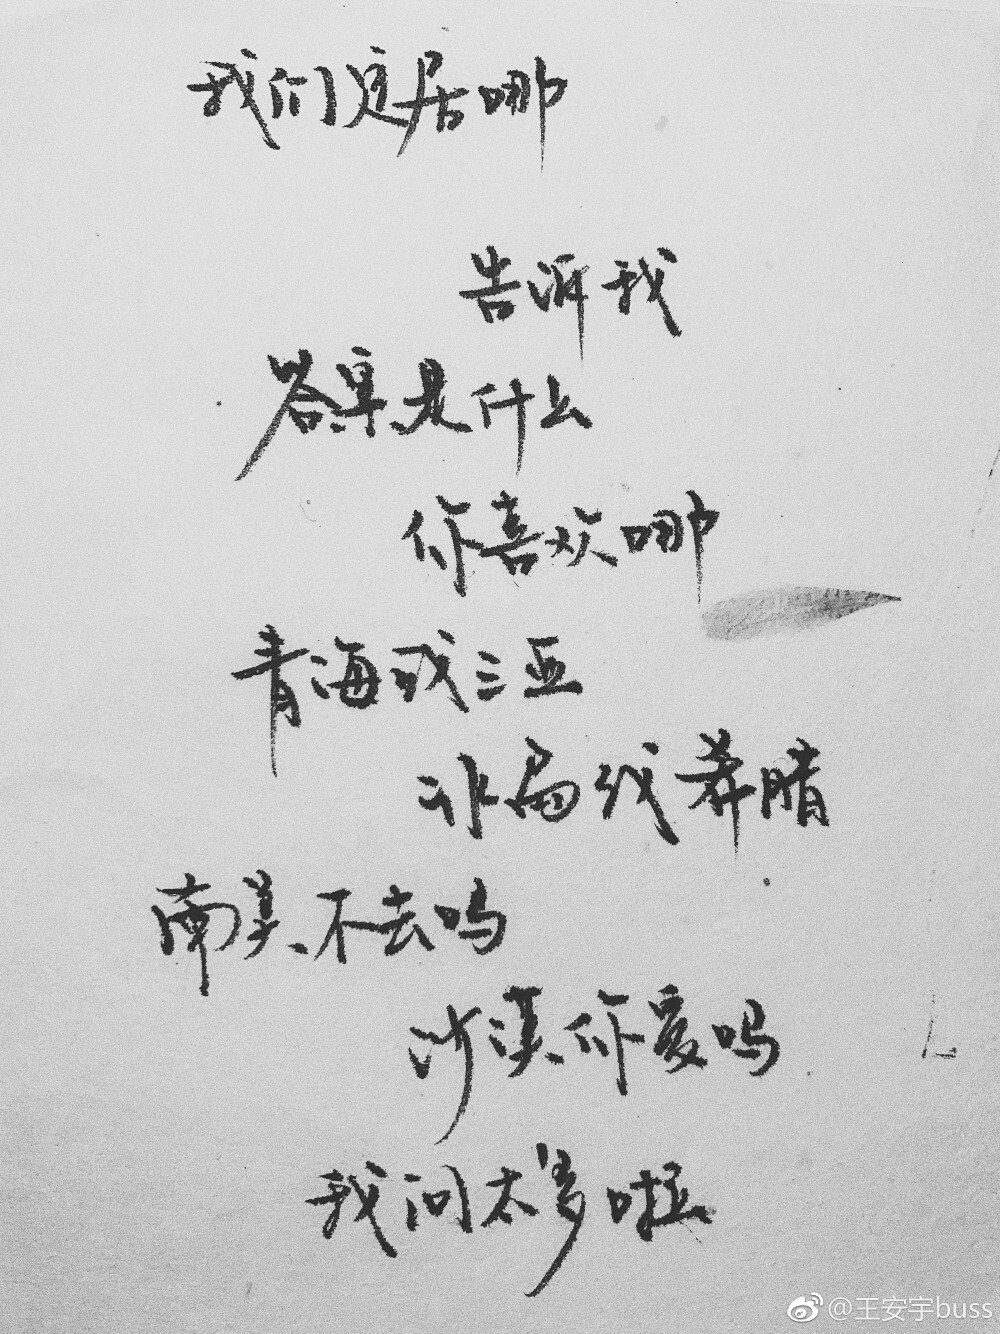 我们定居哪
告诉我
答案是什么
你喜欢哪
青海或三亚
冰岛或希腊
南美不去吗
沙漠你爱吗
我问太多啦
@王安宇buss